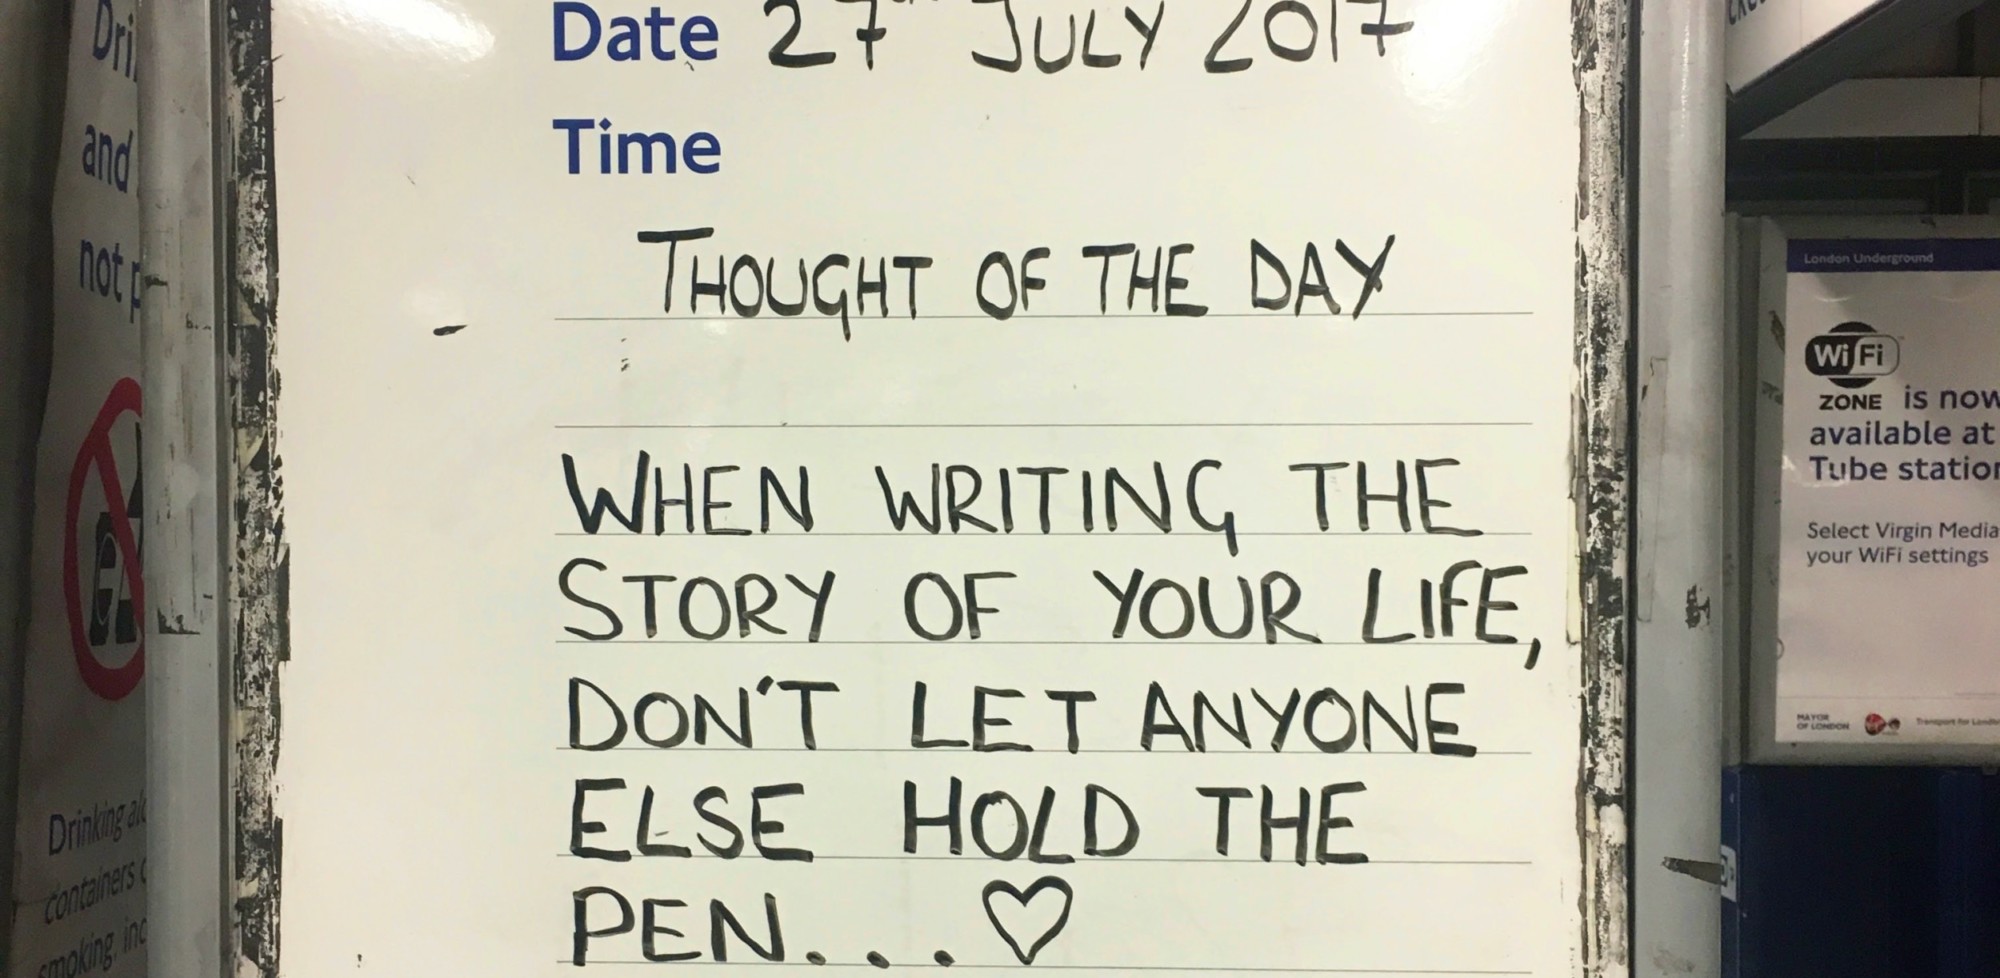 Date 27th JULY 2017
Time
THOUGHT OF THE DAY
WHEN WRITING THE
STORY OF YOUR LIFE,
DON'T LET ANYONE
ELSE HOLD THE
PEN...♡
Dri
and
not p
Drinking alc
containers
smoking, inc
London Underground
WiFi
ZONE is now
available at
Tube station
Select Virgin Media
your WiFi settings
MAYOR
OF LONDON
Transport for London